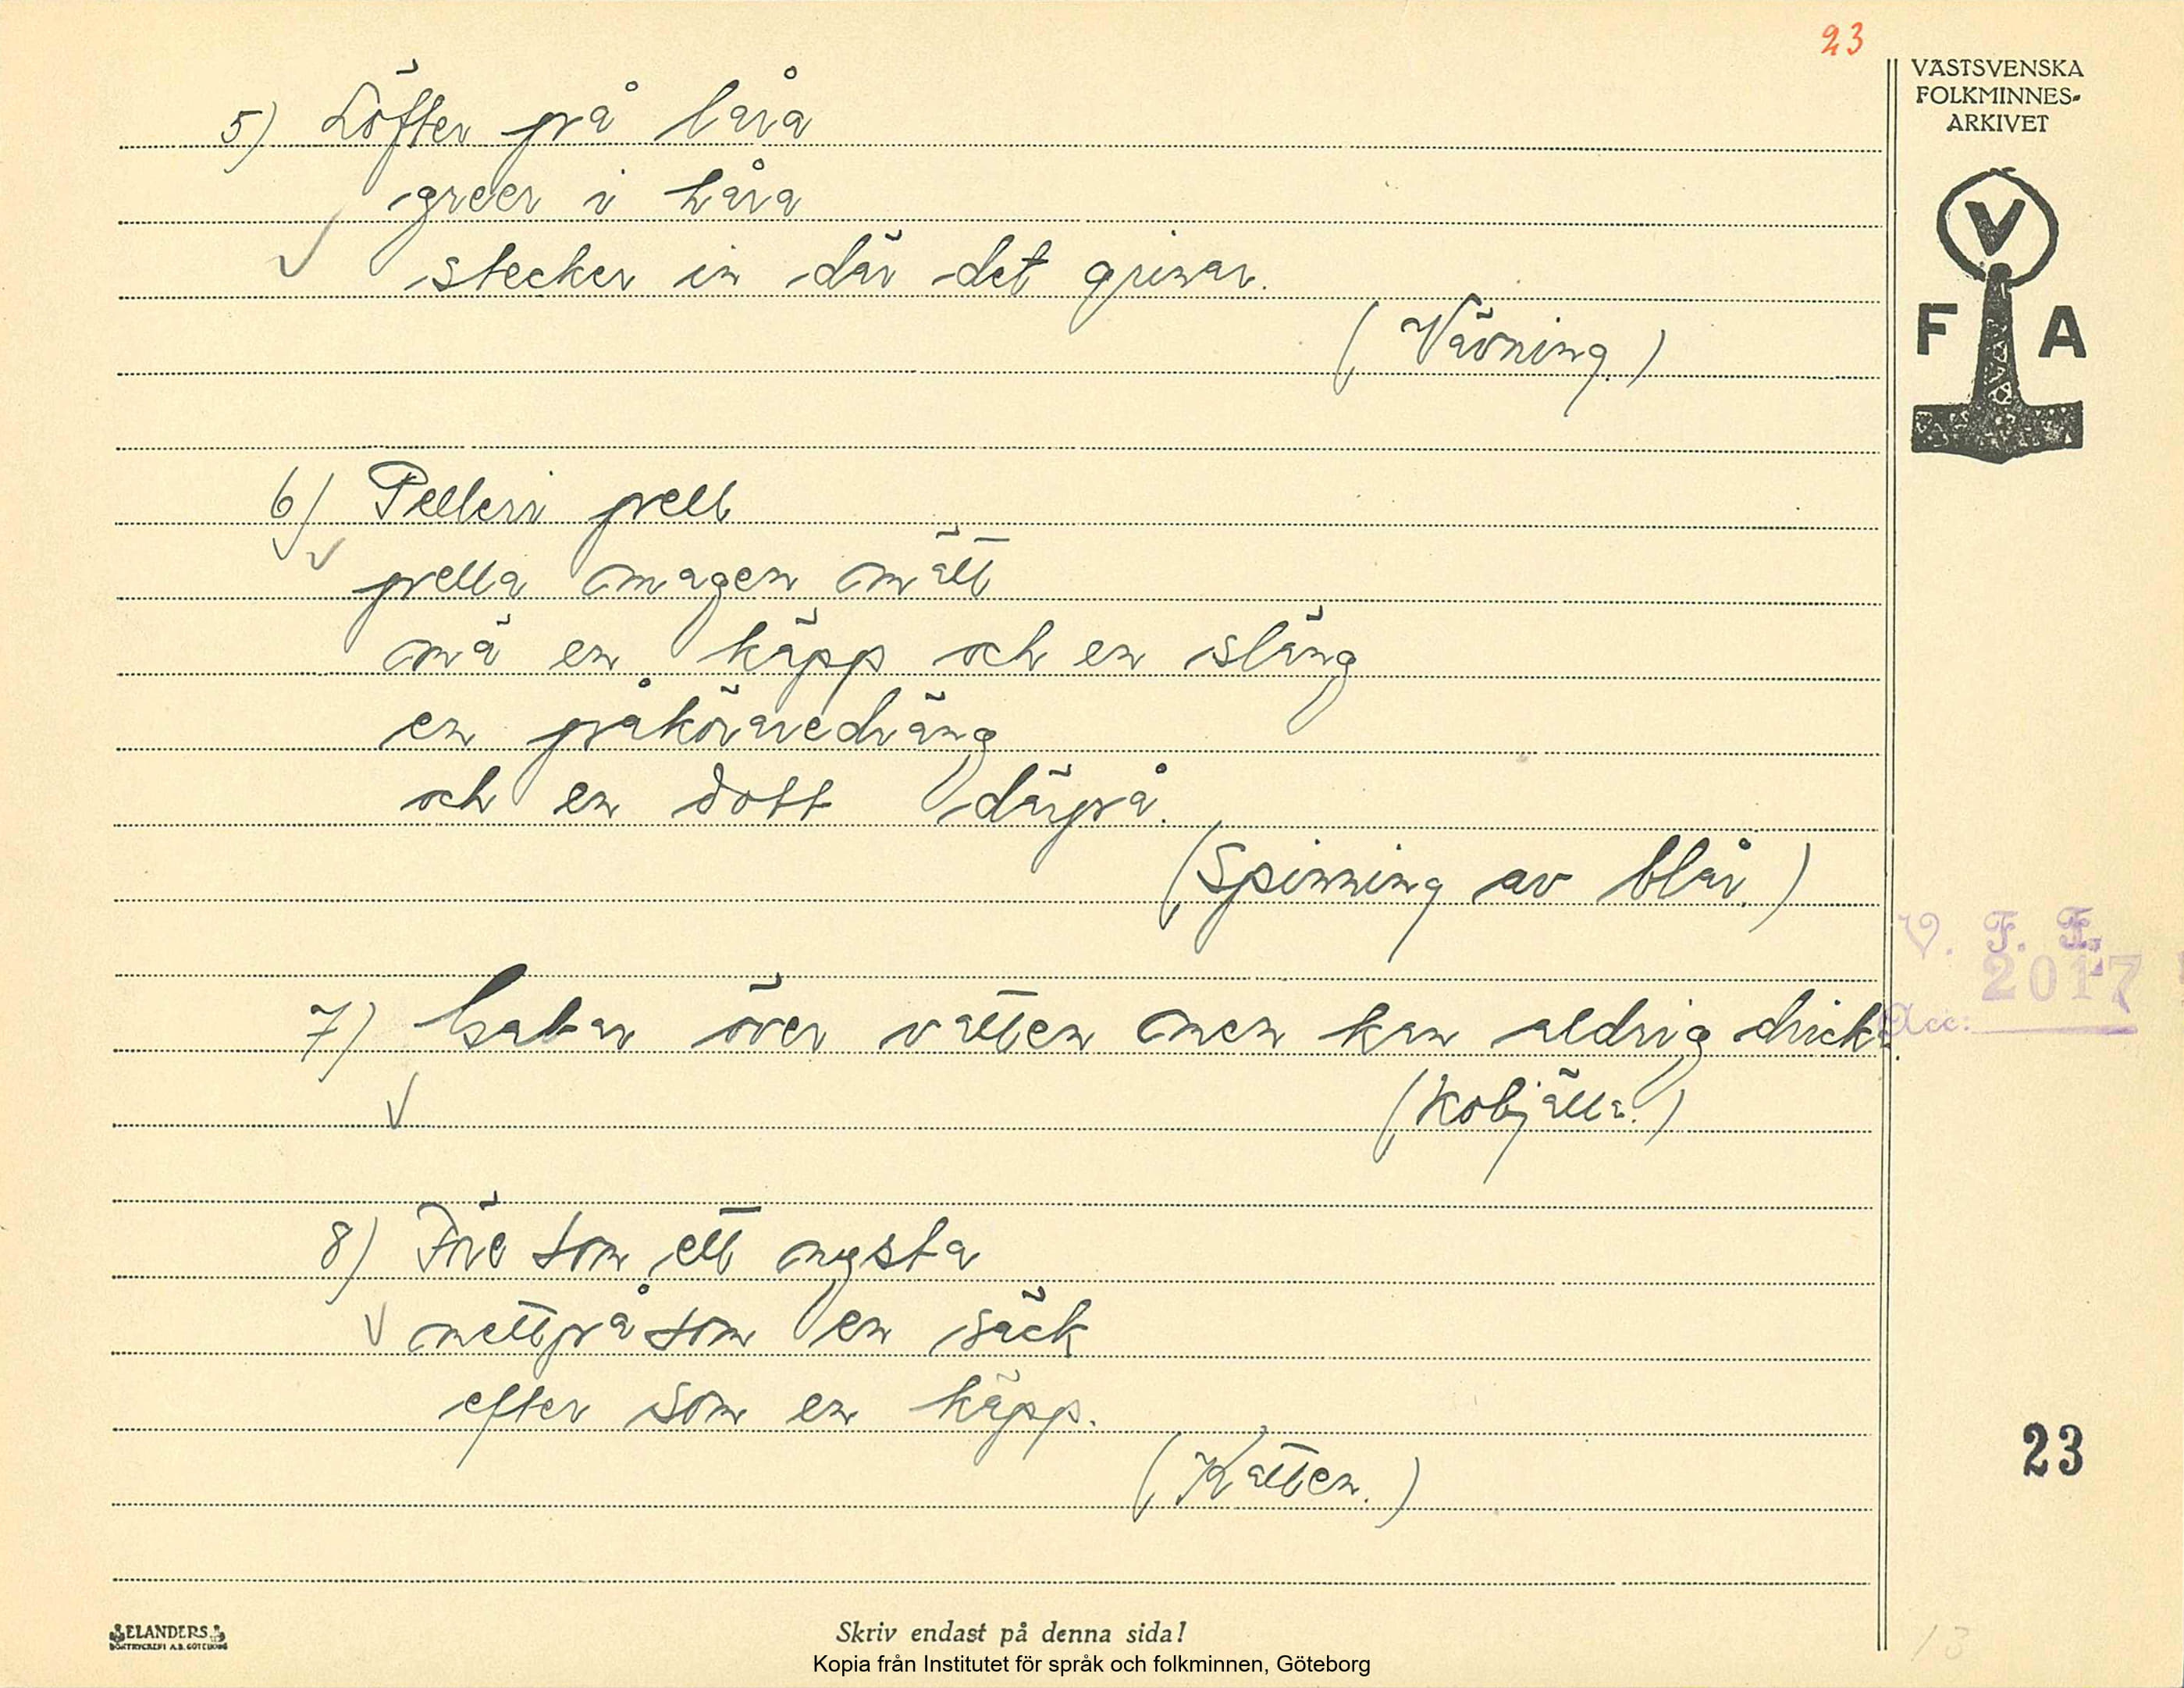 23
VÄSTSVENSKA
FOLKMINNES-
ARKIVET
V
F A
5) Löfter på låra
greer i håra
stecker in där det grinar.
(Vävning.)
6) Pelleri pell
pella magen mätt
mä en käpp och en släng
en påköraredräng
och en dott därpå.
(Spinning av blår.)
7) habar över vatten men kan aldrig dricka.
(Kobjälla.)
8) Före som ett nysta
mettpå som en säck
efter som en käpp.
(Katten.)
V. F. F.
2017
Acc:
23
ELANDERS
BOKTRYCKERI A.B. GÖTEBORG
Skriv endast på denna sida!
Kopia från Institutet för språk och folkminnen, Göteborg
13